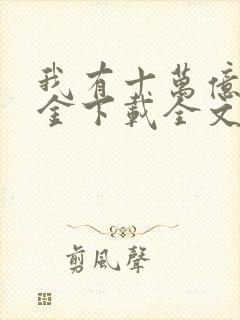 我有十萬億
金下載全文
剪風聲